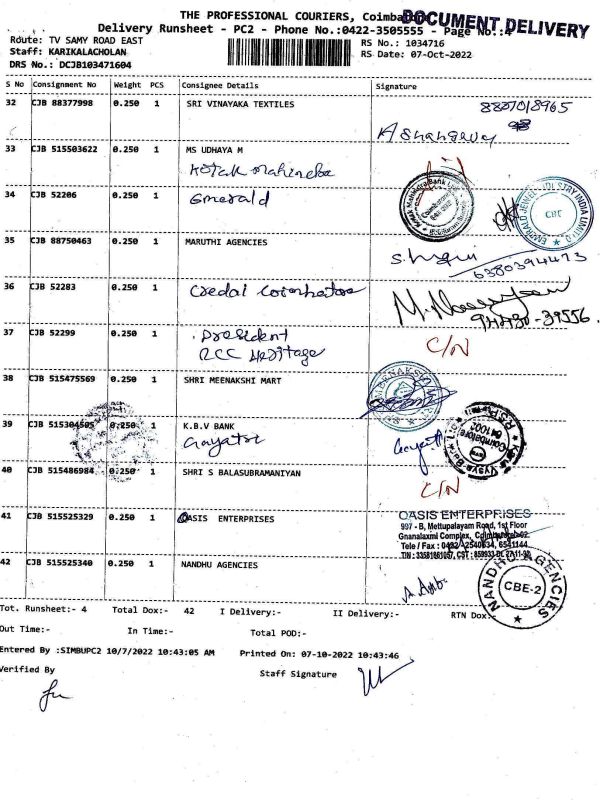 THE PROFESSIONAL COURIERS, Coimba
DOCUMENT DELIVERY
Delivery Runsheet - PC2 - Phone No.:0422-3505555 - Page No.:4
Route: TV SAMY ROAD EAST
RS No.: 1034716
Staff: KARIKALACHOLAN
RS Date: 07-Oct-2022
DRS No.: DCJB103471604
S No Consignment No Weight PCS Consignee Details Signature
32 CJB 88377998 0.250 1 SRI VINAYAKA TEXTILES
33 CJB 515503622 0.250 1 MS UDHAYA M
Kotak Mahindra
34 CJB 52206 0.250 1 Emerald
35 CJB 88750463 0.250 1 MARUTHI AGENCIES
6380394473
36 CJB 52283 0.250 1 Credai Coimbatore
37 CJB 52299 0.250 1 President
RCC Heritage
C/N
38 CJB 515475569 0.250 1 SHRI MEENAKSHI MART
39 CJB 515304505 0.250 1 K.B.V BANK
Gayatri
40 CJB 515486984 0.250 1 SHRI S BALASUBRAMANIYAN
C/N
41 CJB 515525329 0.250 1 OASIS ENTERPRISES
OASIS ENTERPRISES
997 - B, Mettupalayam Road, 1st Floor
Gnanalaxmi Complex, Coimbatore-02.
Tele / Fax : 0422-2540634, 6541144
42 CJB 515525340 0.250 1 NANDHU AGENCIES
NANDHU AGENCIES
CBE-2
Tot. Runsheet:- 4 Total Dox:- 42 I Delivery:- II Delivery:- RTN Dox:-
Out Time:- In Time:- Total POD:-
Entered By :SIMBUPC2 10/7/2022 10:43:05 AM Printed On: 07-10-2022 10:43:46
Verified By Staff Signature